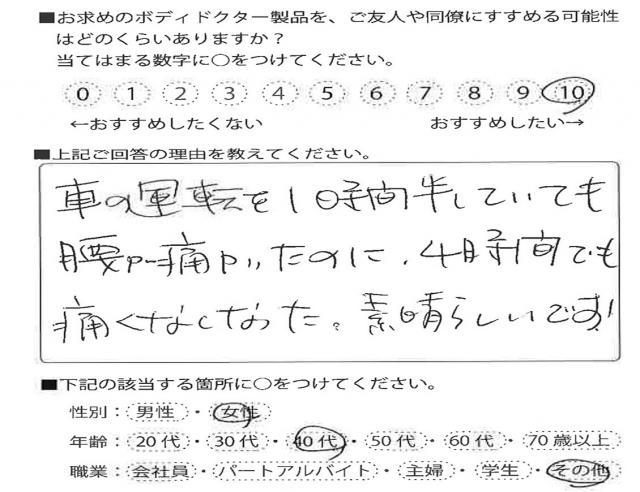 ■お求めのボディドクター製品を、ご友人や同僚にすすめる可能性
はどのくらいありますか？
当てはまる数字に○をつけてください。
0 1 2 3 4 5 6 7 8 9 10
←おすすめしたくない おすすめしたい→
■上記ご回答の理由を教えてください。
車の運転を1時間半していても
腰が痛かったのに、4時間でも
痛くなくなった。素晴らしいです!
■下記の該当する箇所に○をつけてください。
性別：男性・女性
年齢：20代・30代・40代・50代・60代・70歳以上
職業：会社員・パートアルバイト・主婦・学生・その他